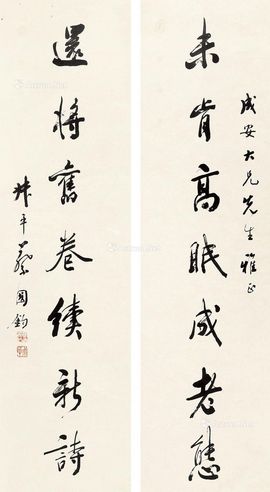 成安大兄先生雅正
未肯高眠成老態
還將舊卷續新詩
叔平蔡國鈞